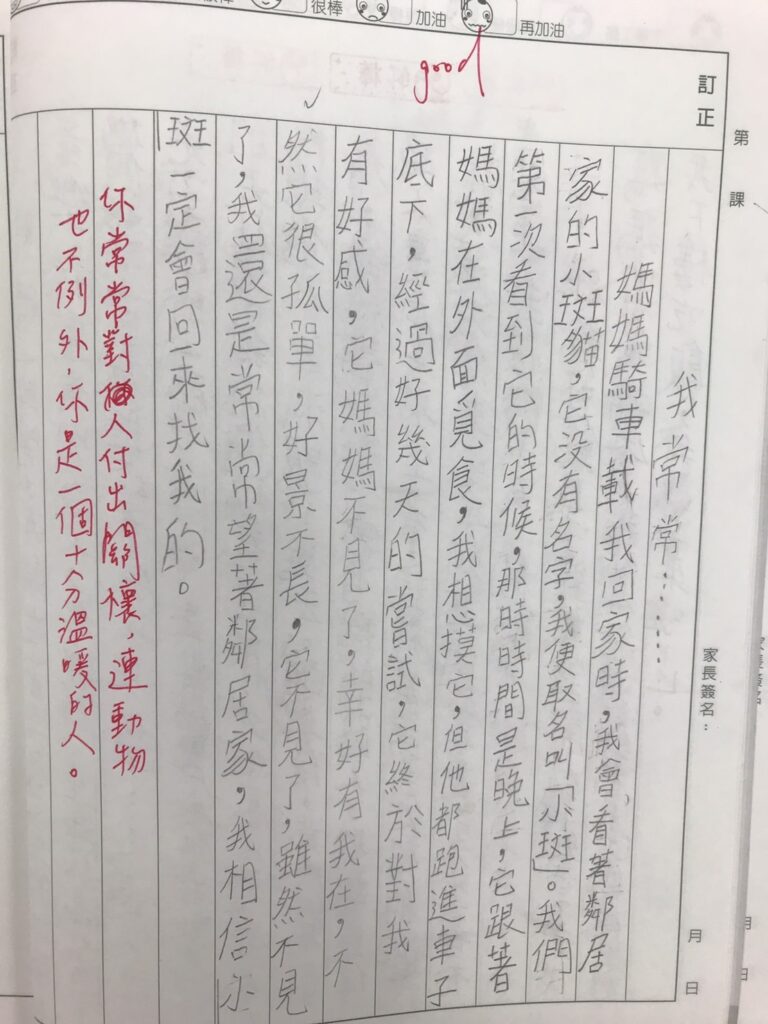 很棒
很棒
加油
再加油
good
訂正
第
課
家長簽名：
月
日
我常常……
媽媽騎車載我回家時，我會看著鄰居
家的小斑貓，它沒有名字，我便取名叫「小斑」。我們
第一次看到它的時候，那時時間是晚上，它跟著
媽媽在外面覓食，我想摸它，但他都跑進車子
底下，經過好幾天的嘗試，它終於對我
有好感，它媽媽不見了，幸好有我在，不
然它很孤單，好景不長，它不見了，雖然不見
了，我還是常常望著鄰居家，我相信小
斑一定會回來找我的。
你常常對人付出關懷，連動物
也不例外，你是一個十分溫暖的人。